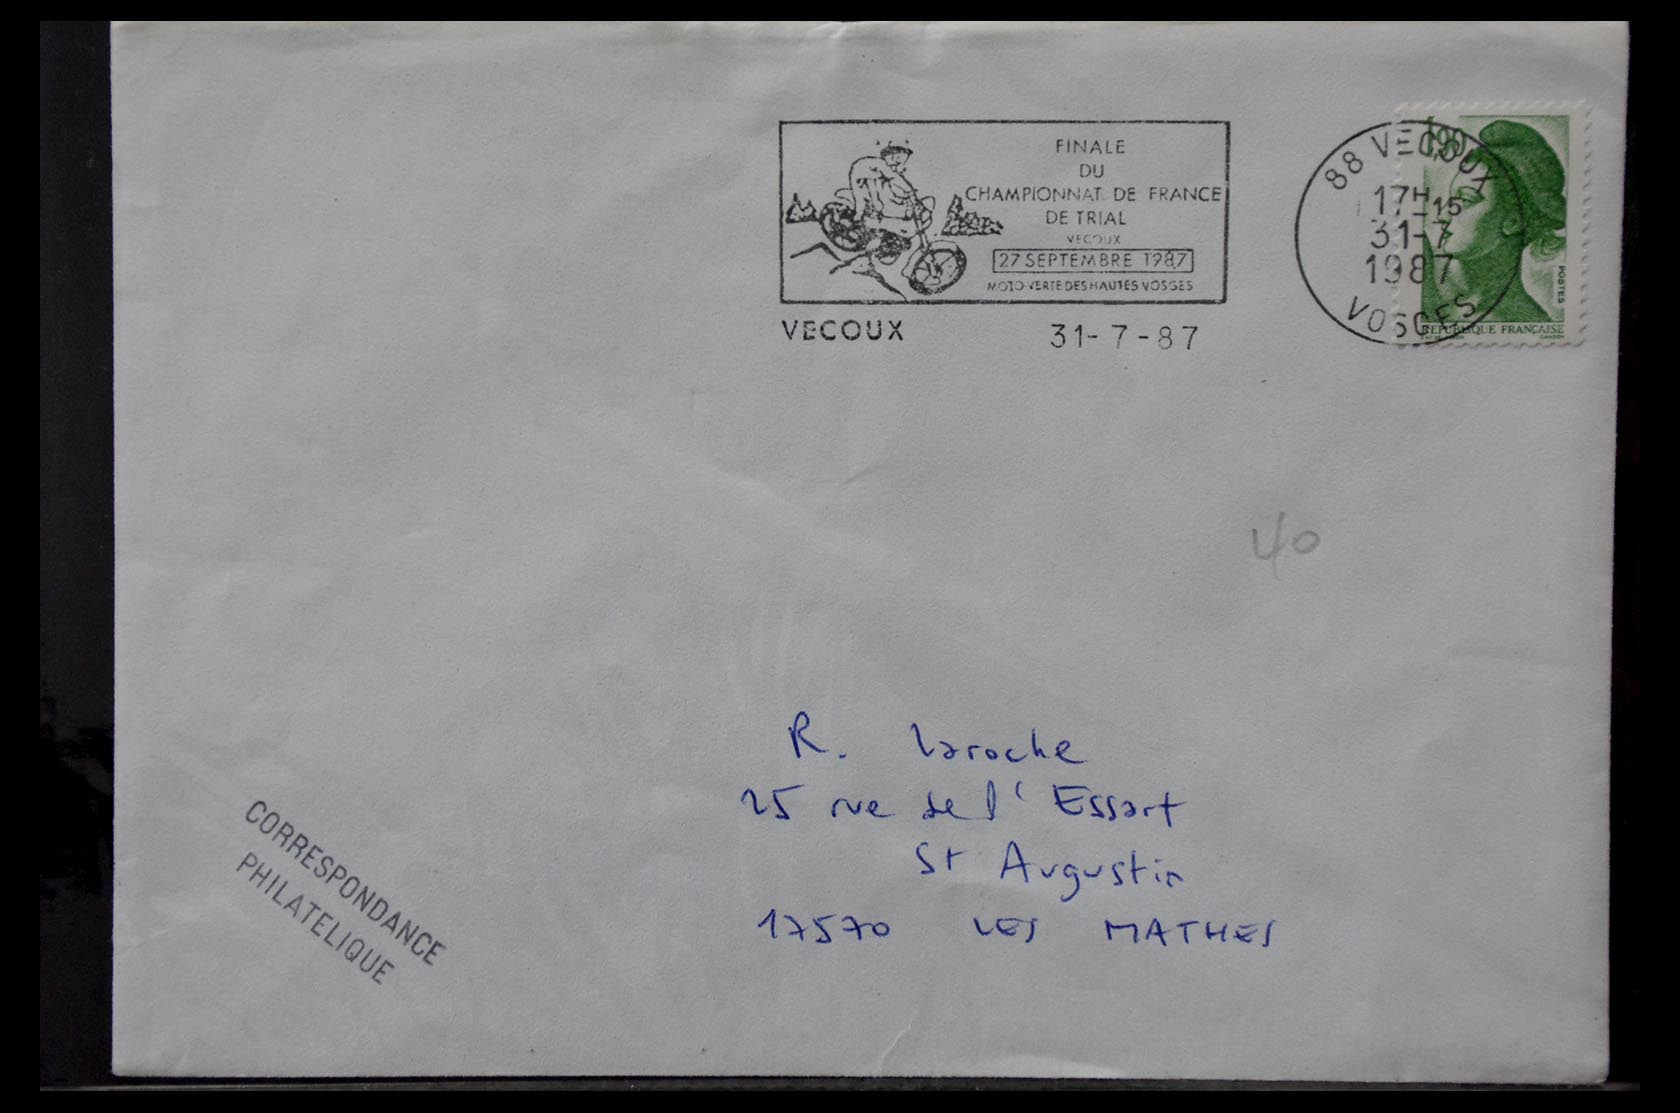 FINALE
DU
CHAMPIONNAT DE FRANCE
DE TRIAL
VECOUX
27 SEPTEMBRE 1987
MOTO VERTE DES HAUTES VOSGES
VECOUX 31-7-87
88 VECOUX
17H-15
31-7
1987
VOSGES
1,90
POSTES
REPUBLIQUE FRANÇAISE
GANDON
40
R. Laroche
25 rue de l'Essart
St Augustin
17570 LES MATHES
CORRESPONDANCE
PHILATELIQUE